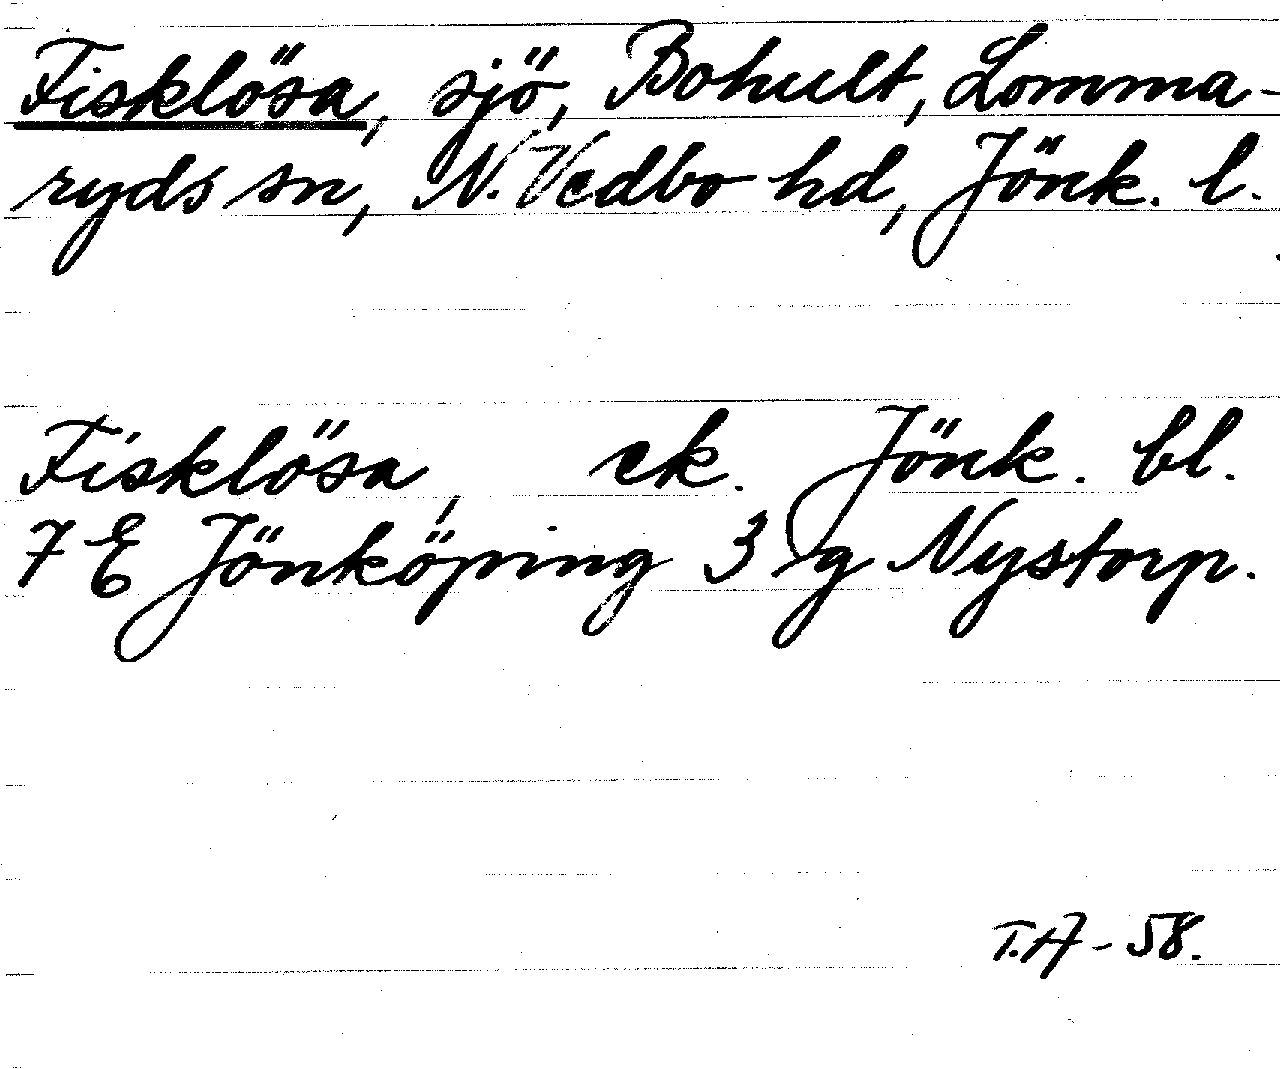 Fisklösa, sjö, Bohult, Lomma-
ryds sn, N. Vedbo hd, Jönk. l.
Fisklösa, ek. Jönk. bl.
7 E Jönköping 3 g Nystorp.
T.A - 58.